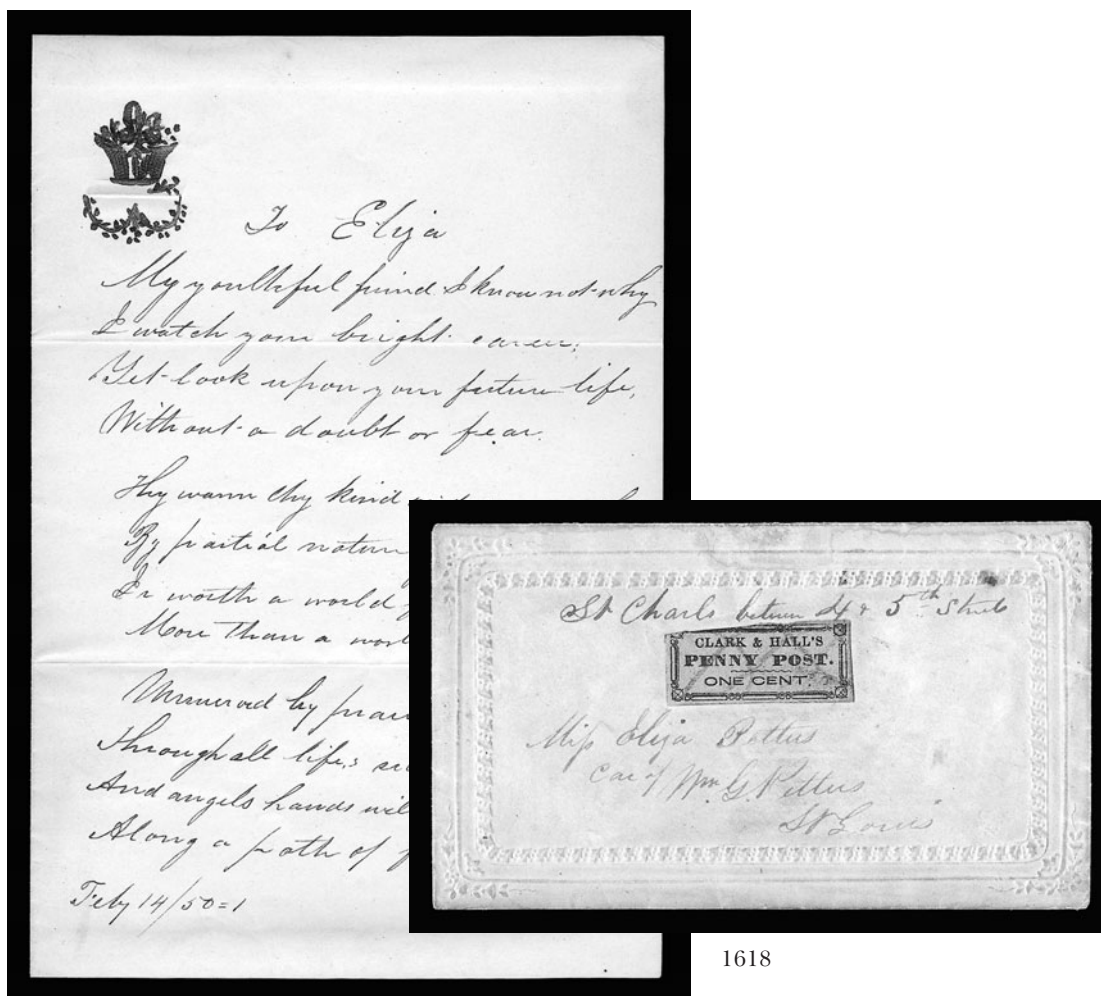 To Eliza
My youthful friend I know not why
I watch your bright career,
Yet look upon your future life,
Without a doubt or fear.
Thy warm thy kind
By partial nature
Is worth a world
More than a
by
Through all life,s
And angels hands
Along a path of
Feby 14/50=1
St Charls between 4 & 5th Streets
CLARK & HALL'S
PENNY POST.
ONE CENT.
Miss Eliza Pettus
Care of Wm. G. Pettus
St Louis
1618